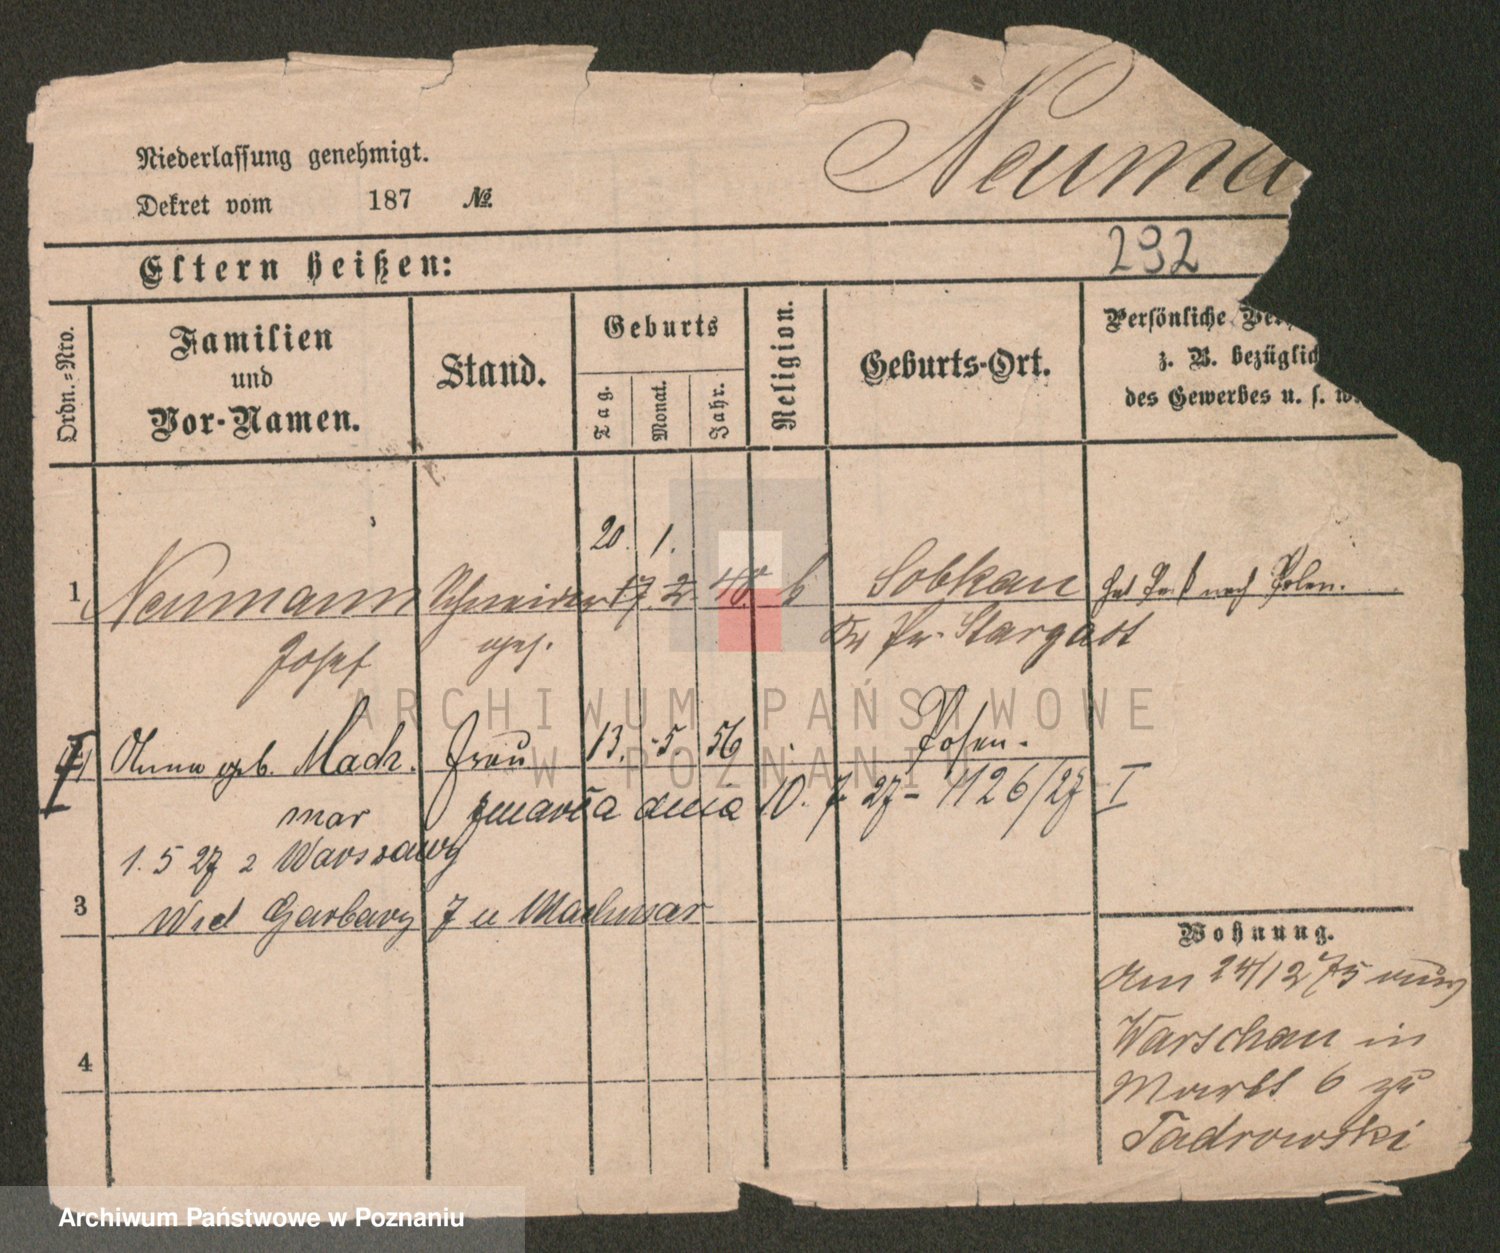 Neuma
Niederlassung genehmigt.
Dekret vom 187 №
292
Eltern heißen:
Ordn.-Nro.
Familien
und
Vor-Namen.
Stand.
Geburts
Tag. Monat. Jahr.
Religion.
Geburts-Ort.
Persönliche
z. B. bezüglich
des Gewerbes u. s. w.
20. 1.
1 Neumann Schneider 17. 2. 48 k Sobkau hat Paß nach Polen.
Josef ges. Kr Pr. Stargadt
I Anna geb. Mach. Frau 13. 5 56 Posen.
mar zmarła dnia 10. 7. 27 - 1126/27 I
1. 5 27 z Warszawy
3 Wrd Garbary 7 u Machmar
Wohnung.
Am 24/12 75 aus
Warschau in
Markt 6 zu
Tadrowski
4
ARCHIWUM PAŃSTWOWE
W POZNANIU
Archiwum Państwowe w Poznaniu